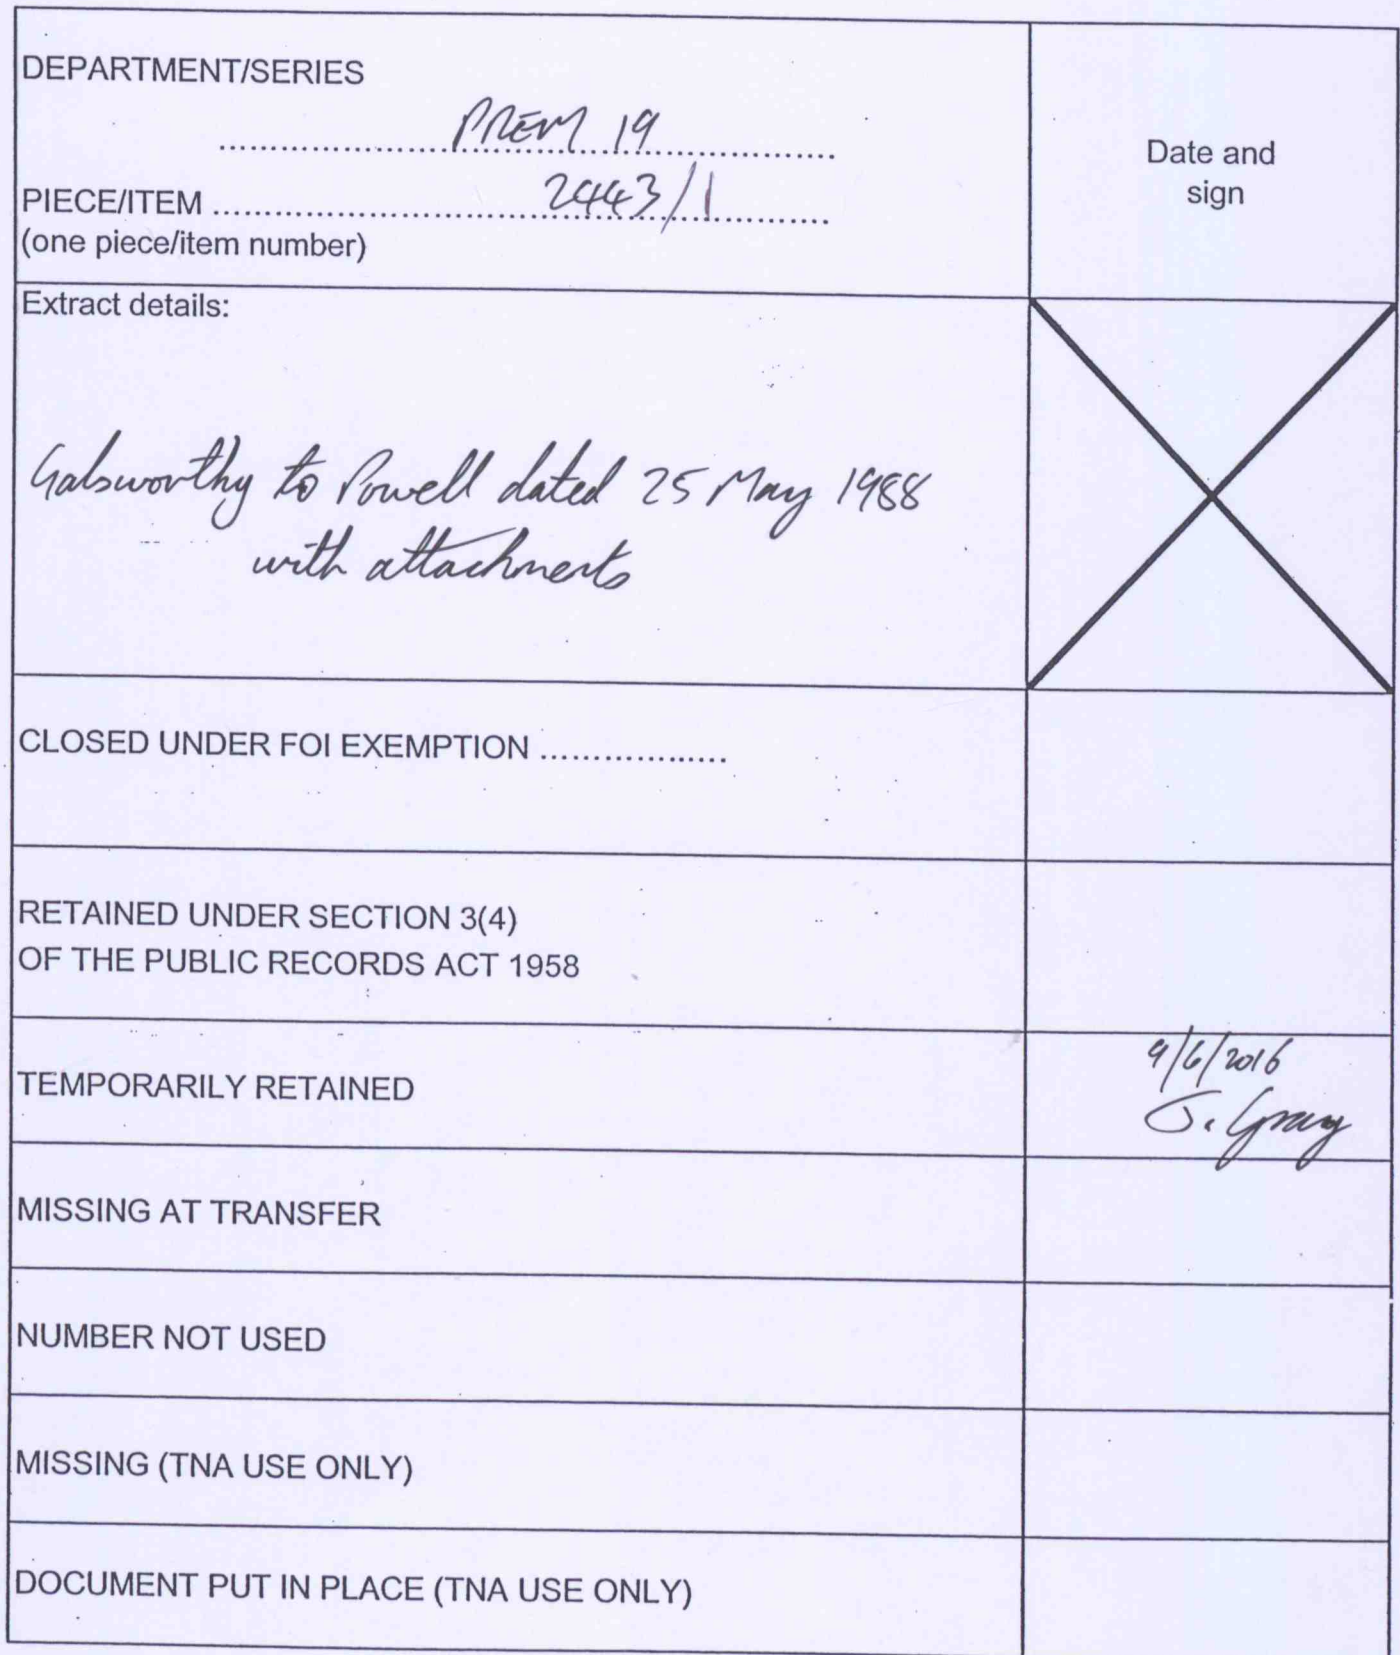 DEPARTMENT/SERIES
PREM 19
PIECE/ITEM 2443/1
(one piece/item number)
Date and
sign
Extract details:
Galsworthy to Powell dated 25 May 1988
with attachments
CLOSED UNDER FOI EXEMPTION
RETAINED UNDER SECTION 3(4)
OF THE PUBLIC RECORDS ACT 1958
TEMPORARILY RETAINED
9/6/2016
J. Gray
MISSING AT TRANSFER
NUMBER NOT USED
MISSING (TNA USE ONLY)
DOCUMENT PUT IN PLACE (TNA USE ONLY)